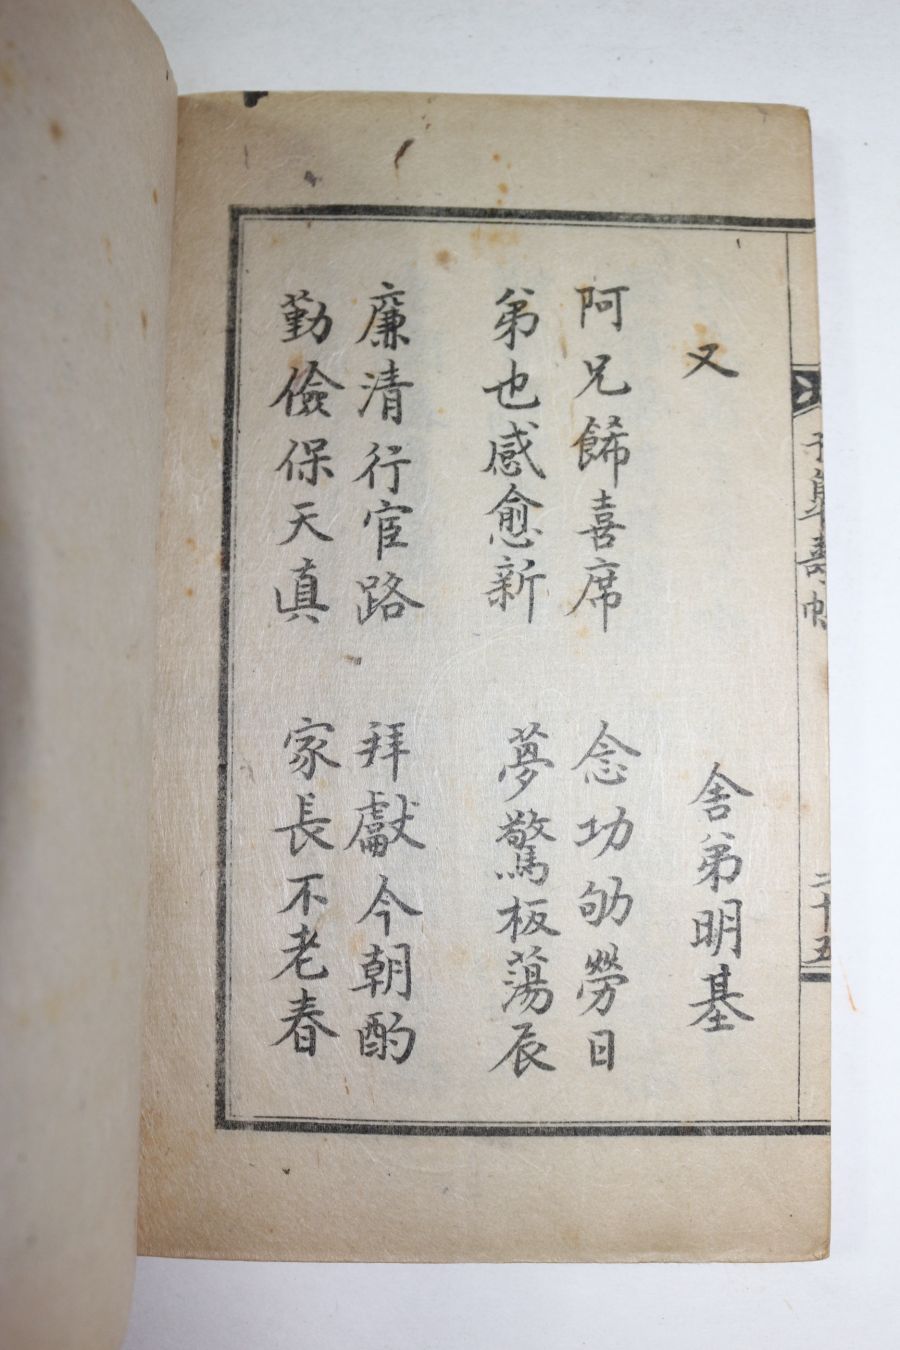 又
舍弟明基
阿兄餙喜席 念功劬勞日
弟也感愈新 夢驚板蕩辰
廉清行宦路 拜獻今朝酌
勤儉保天真 家長不老春
壽帖
二十五